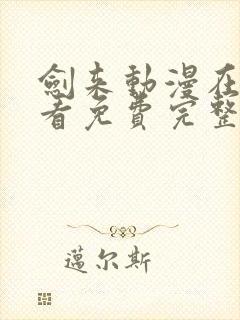 劍来動漫在
看免費完整
邁尔斯